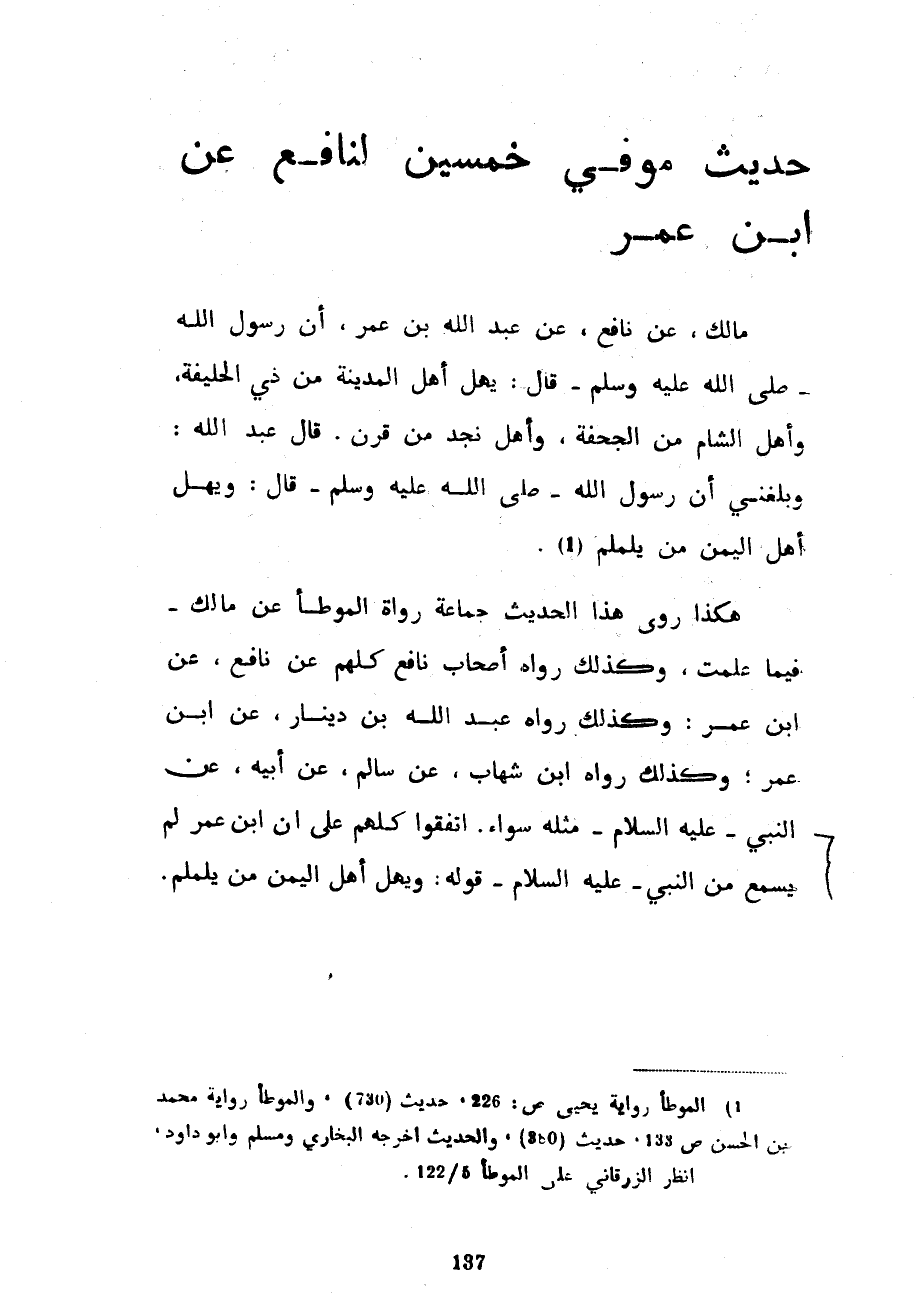 حديث موفي خمسين لنافع عن
ابن عمر
مالك، عن نافع، عن عبد الله بن عمر، أن رسول الله
ـ صلى الله عليه وسلم ـ قال: يهل أهل المدينة من ذي الحليفة،
وأهل الشام من الجحفة، وأهل نجد من قرن. قال عبد الله:
وبلغني أن رسول الله ـ صلى الله عليه وسلم ـ قال: ويهل
أهل اليمن من يلملم (1).
هكذا روى هذا الحديث جماعة رواة الموطأ عن مالك ـ
فيما علمت، وكذلك رواه أصحاب نافع كلهم عن نافع، عن
ابن عمر: وكذلك رواه عبد الله بن دينار، عن ابن
عمر؛ وكذلك رواه ابن شهاب، عن سالم، عن أبيه، عن
النبي ـ عليه السلام ـ مثله سواء. اتفقوا كلهم على ان ابن عمر لم
يسمع من النبي ـ عليه السلام ـ قوله: ويهل أهل اليمن من يلملم.
1) الموطأ رواية يحيى ص: 226، حديث (730)، والموطأ رواية محمد
بن الحسن ص 133، حديث (380)، والحديث اخرجه البخاري ومسلم وابو داود،
انظر الزرقاني على الموطأ 122/5.
137